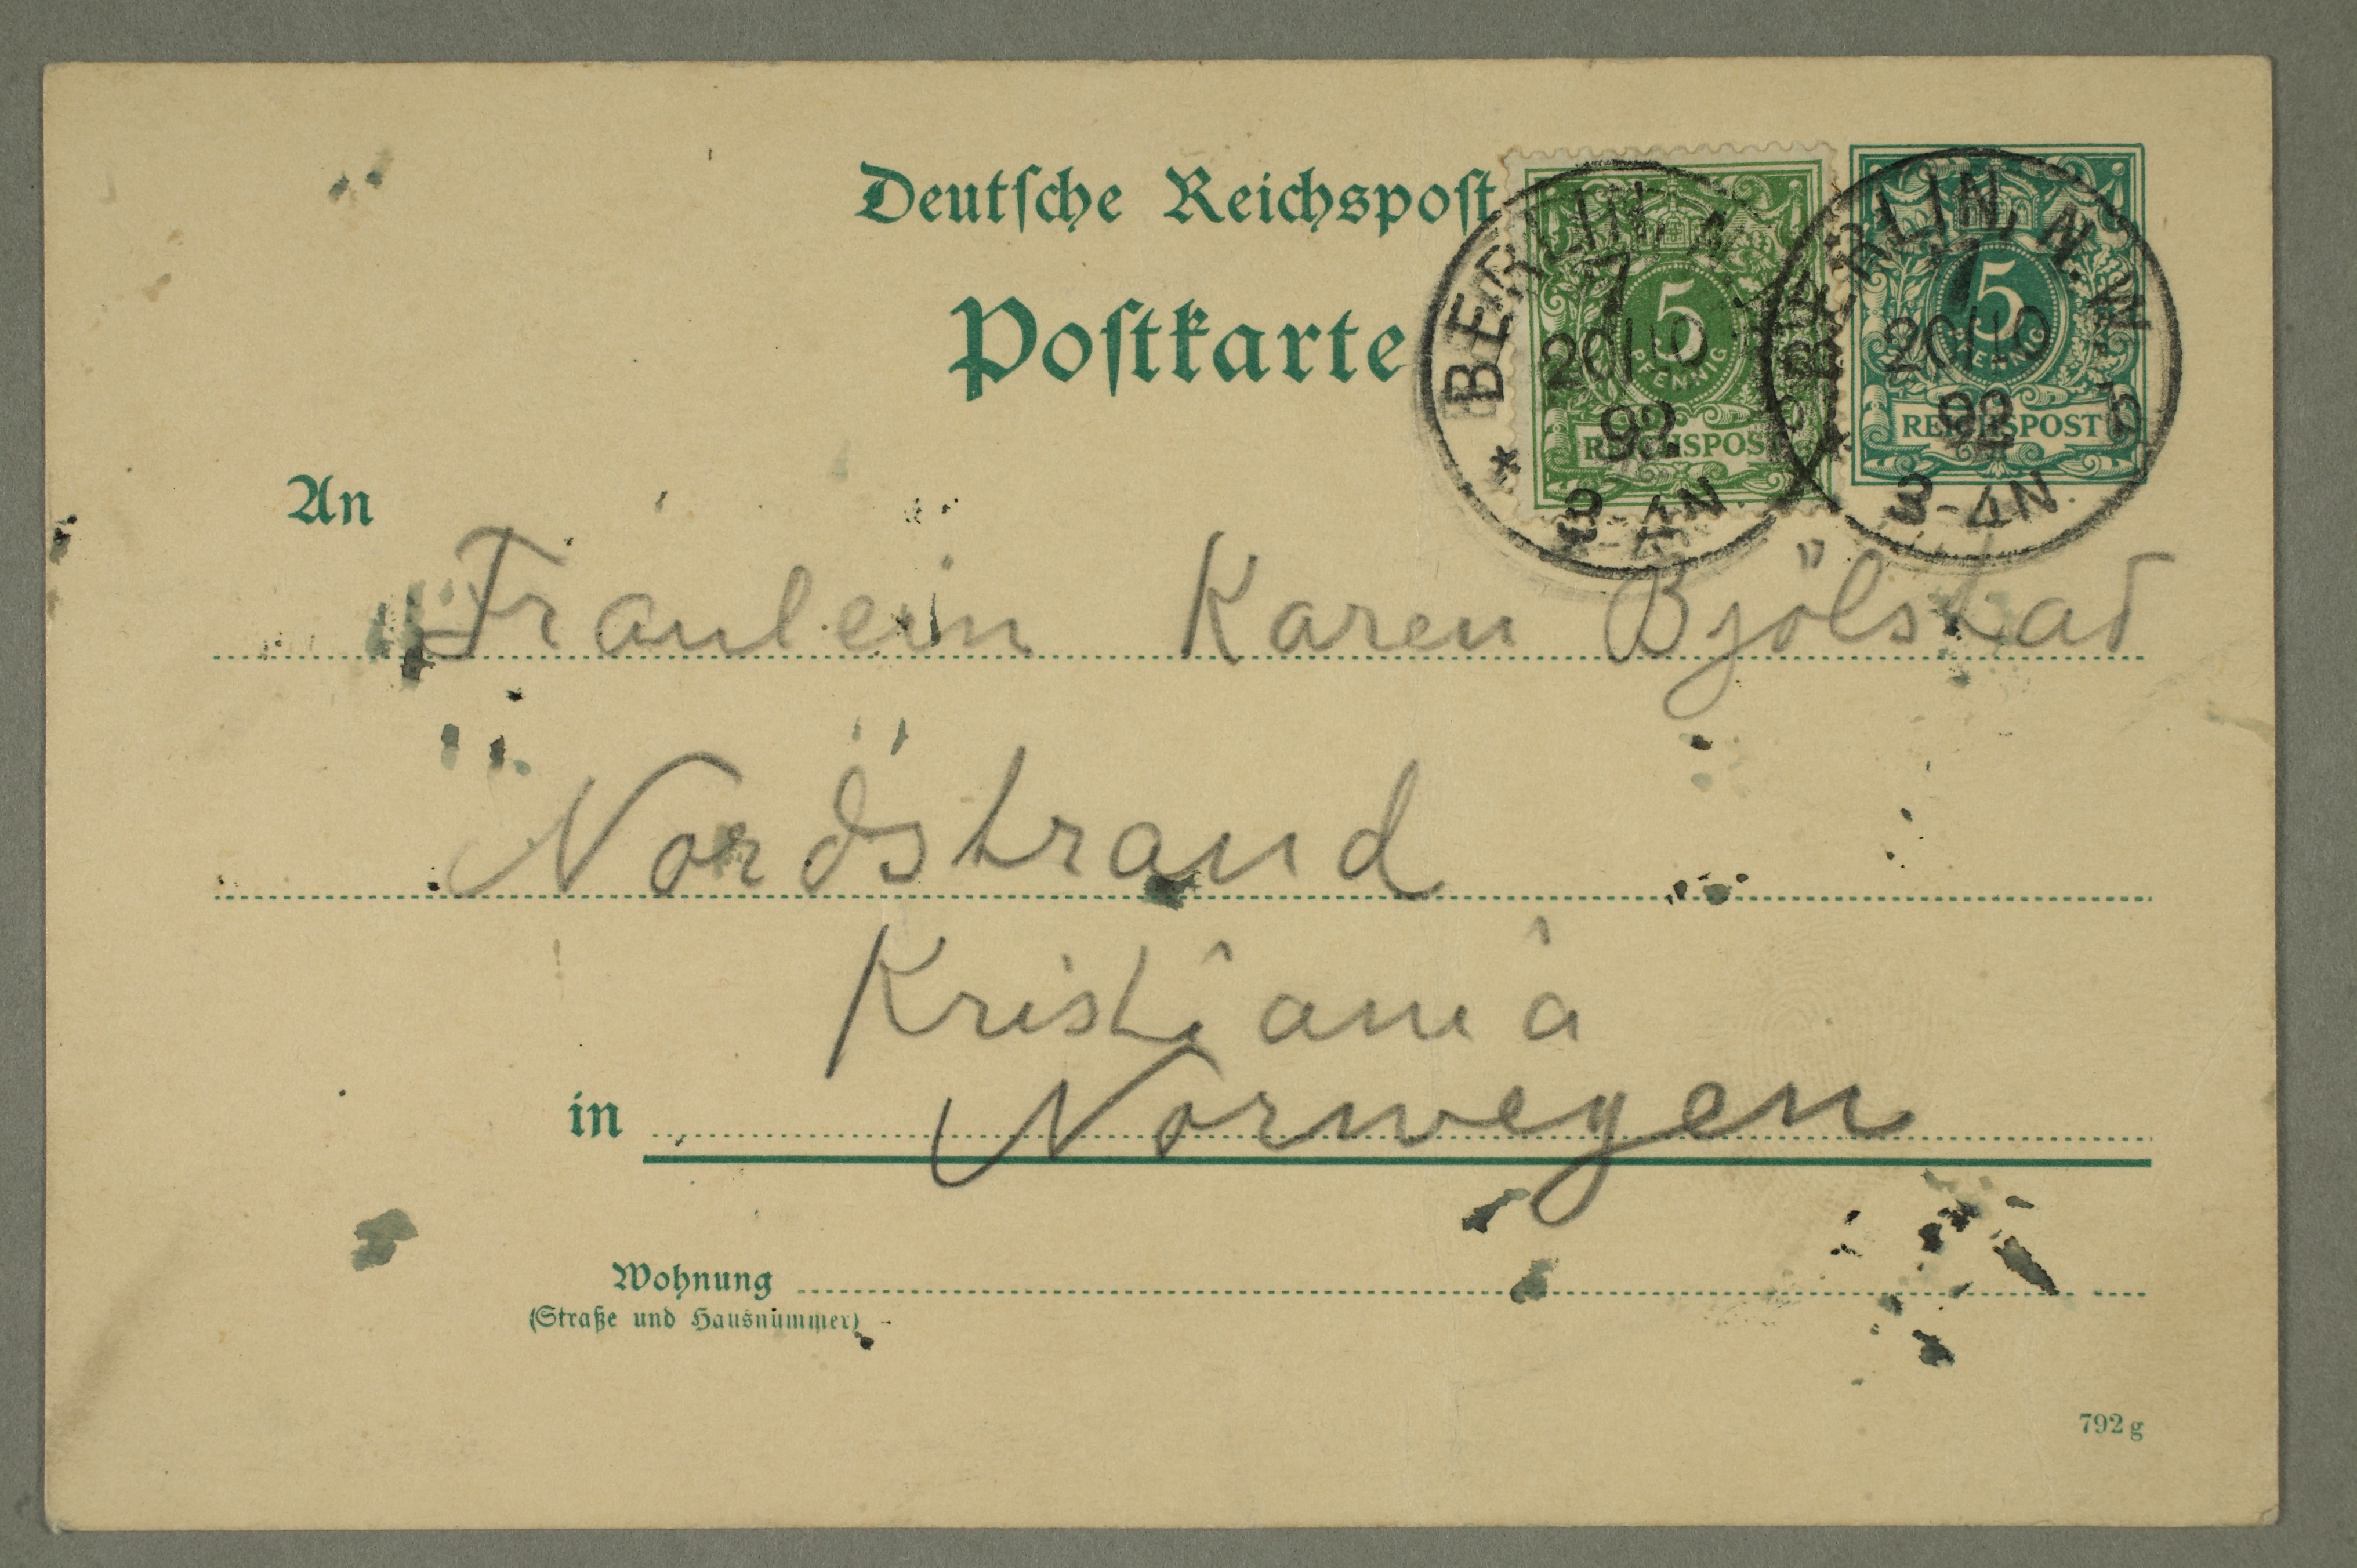 Deutsche Reichspost
Postkarte
BERLIN, N.W.
7
20/10
92
3-4N.
5
PFENNIG
REICHSPOST
BERLIN, N.W.
7
20/10
92
3-4N.
5
PFENNIG
REICHSPOST
An
Fräulein Karen Bjölstad
Nordstrand
Kristiania
in Norwegen
Wohnung
(Straße und Hausnummer)
792 g